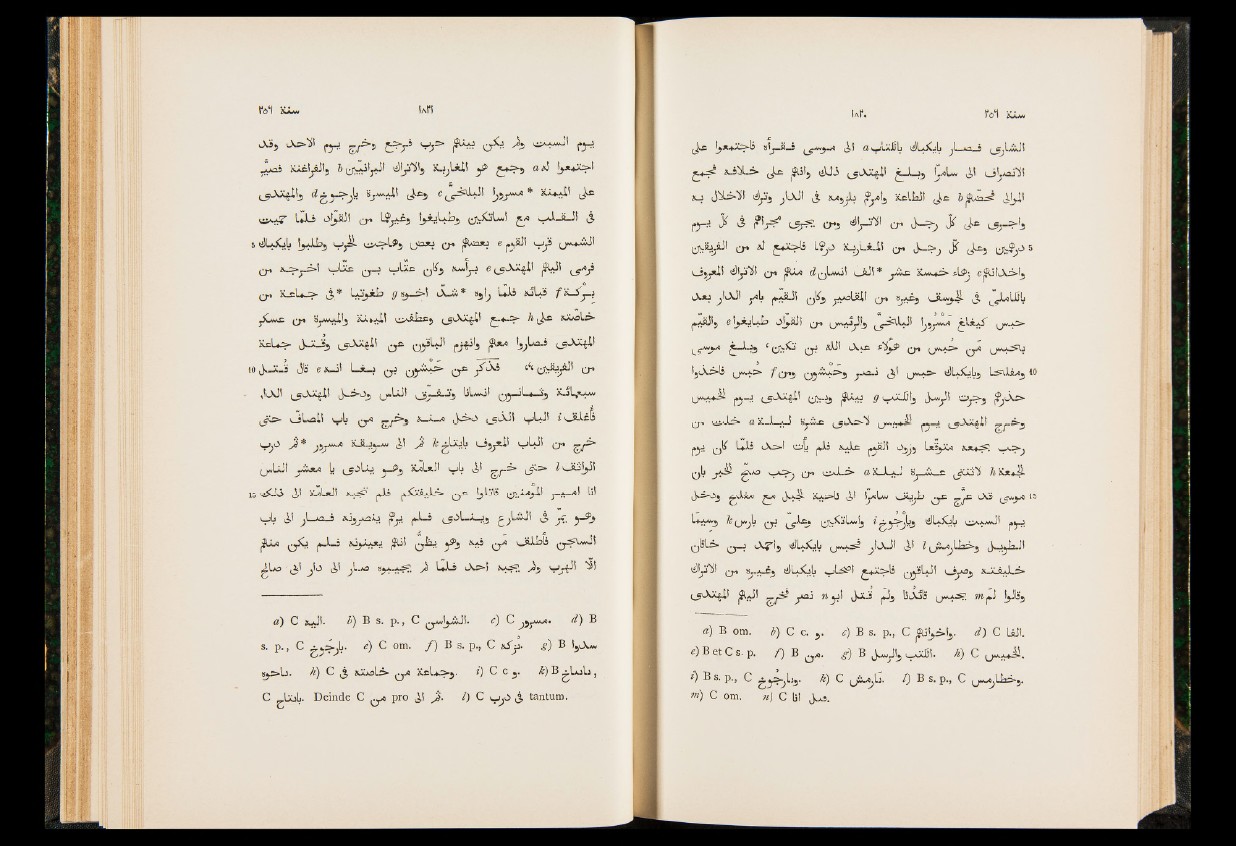 سنة ٢٥٦ ١٨٣٠
الشارى فصار بايكباك بالكتاب a الى موسى فقرأه فاجتمعوا على
الانصراف الى سامرّا وبلغ المهتدى ذلك وانهم على خلافه فجمع
الموالى فحضّهم b على الطاعة وامرهم بلزومه فى الدار وترك الاخلال به
واجرى على كلّ رجل من الاتراك ومن يجرى مجراهم فى كلّ يوم
5 درهمين وعلى كلّ رجل من المغاربة درهما فاجتمع له من الفريقين
واخدانهم c زهاء خمسة عشر * الف انسان d منهم من الاتراك المعروف
بالكاملىّ فى الجوسق وغيره من المقاصير وكان القيّم بامر الدار بعد
حبس كيغلغ مسرورا البلخىّ والرئيس من القوّاد طبايغوا e والقيّم
بحبس من حُبس من هؤلاء عبد الله بن تكين، وبلغ موسى
10 ومفلحا وبايكباك حبس ابى نصر وحبشون ومن f حُبس فاخذوا
حذرهم وجرت الرسل والكتب g بينهم وبين المهتدى يوم الخميس
وخرج المهتدى يوم الخميس لاحدى عشرة ليلة a خلت من
رجب بجمعه متوقّعا ورود القوم عليه فلم يأت احد فلمّا كان يوم
الجمعة h لاثنتى عشرة ليلة a خلت من رجب صحّ الخبر بان
15 موسى قد عرّج عن طريق سامرّا الى ناحية الجبل مع مفلح ودخل
يوم السبت بايكباك ويارجوخ i واساتكين وعلىّ بن بارس k وسيما
الطويل وخطارمش l الى الدار فحبس بايكباك واحمد بن خاقان
خليفته وصرف الباقون فاجتمع اصحاب بايكباك وغيره من الاتراك
وقالوا لم m يحبس قائدنا ولم قُتل ابو n نصر فخرج اليهم المهتدى
a) B om. b) C c. و. c) B s. p., C واخوانهم. d) C الفا.
e) B et C s. p. f) B من. g) B والرسل الكتب. h) C الخميس.
i) B s. p., C وبارجوخ. k) C نارمش. l) B s. p., C وخطارمس.
m) C om. n) C قتل انا.
سنة ٢٥٦ ١٨٣١
يوم السبت ولم يكن بينهم حرب فرجع وخرج يوم الاحد وقد
اجتمعوا له a وجمع هو المغاربة والاتراك البرانيّين b والفراغنة فصيّر
على الميمنة * مسرورا البلخىّ c وعلى الميسرة يارجوخ d والمهتدى
فى القلب مع اساتكين وطبايغوا وغيرهما من القوّاد فلمّا حميت
5 الشمس قرب القوم e بعضهم من بعض وهاجت الحرب وطلبوا بايكباك
فرمى اليهم المهتدى e برأسه وكان عتّاب بن عتّاب اخرجه من
بركة f قبائه فلمّا راوه * شدّ اخوه g طغوتيا * فى جماعة من
خاصّته على h جمع المهتدى وعطفت الميمنة والميسرة من عسكر
المهتدى فصاروا معهم وانهزم الباقون عن المهتدى وقُتل جماعة
10 من الفريقين، فذكر عن حبشون بن بغا انه e قال قُتل
سبعمائة وثمانون انسانا وتفرّق الناس ودخل المهتدى الدار،
فأُغلق i الباب الذى دخل منه وخرج من باب المصافّ حتى
خرج من الباب المعروف بايتاخ k ثم الى سويقة مسرور * ثم درب
الواثق l حتى خرج الى باب العامّة وهو ينادى يا معشر الناس
15 انا امير المؤمنين قاتلوا عن خليفتكم فلم تجبه العامّة الى ذلك
وهو يمرّ فى الشارع وينادى فلم يرهم ينصرونه فصار الى باب
السجن فأطلق من فيه وهو يظنّ انهم يعينونه فلم يكن منهم
الّا الهرب ولم يجبه احد فلمّا لم يجيبوه صار الى دار ابى صالح
a) C اليه. b) B s. p., C الشواسن. c) C مسرور. d) B
s. p., C بارجوخ. e) C om. f) B s. p., C تركه. g) B سدلوا
ناحوه. h) C وجماعة من خاصته فى. i) C c و. k) B ,
C بايتاج. Deinde C من pro ثم الى. l) C فى درب tantum.